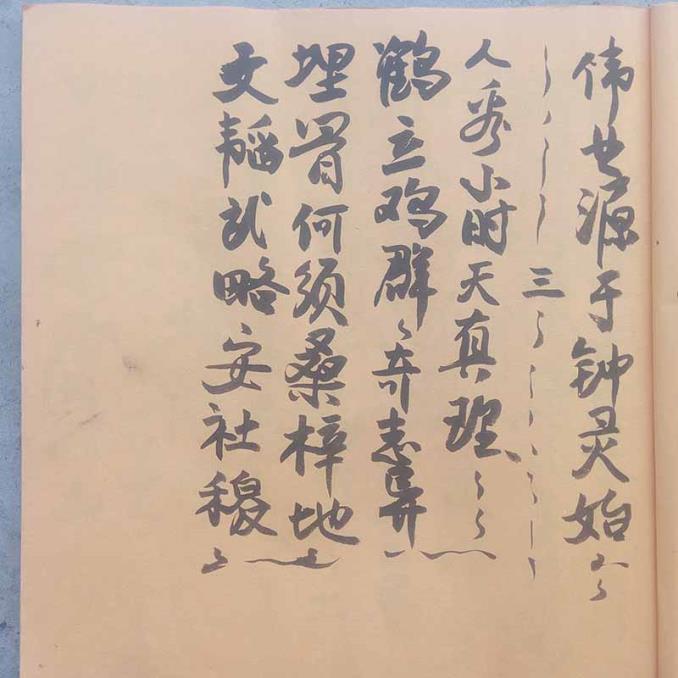 伟世源于钟灵始
三
人秀小时天真理
鹤立鸡群奇志异
埋骨何须桑梓地
文韬武略安社稷